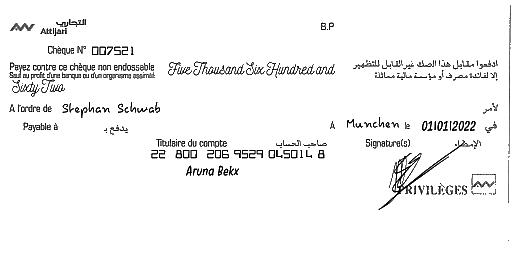 التجاري
Attijari
B.P
Chèque N° 007521
Payez contre ce chèque non endossable
Sauf au profit d'une banque ou d'un organisme assimilé
Five Thousand Six Hundred and
ادفعوا مقابل هذا الصك غير القابل للتظهير
إلا لفائدة مصرف أو مؤسسة مالية مماثلة
Sixty Two
A l'ordre de Stephan Schwab
لأمر
Payable à يدفع بـ
A Munchen le 01/01/2022 في
Titulaire du compte صاحب الحساب
Signature(s) الإمضاء
22 800 206 9529 045014 8
Aruna Bekx
PRIVILÈGES